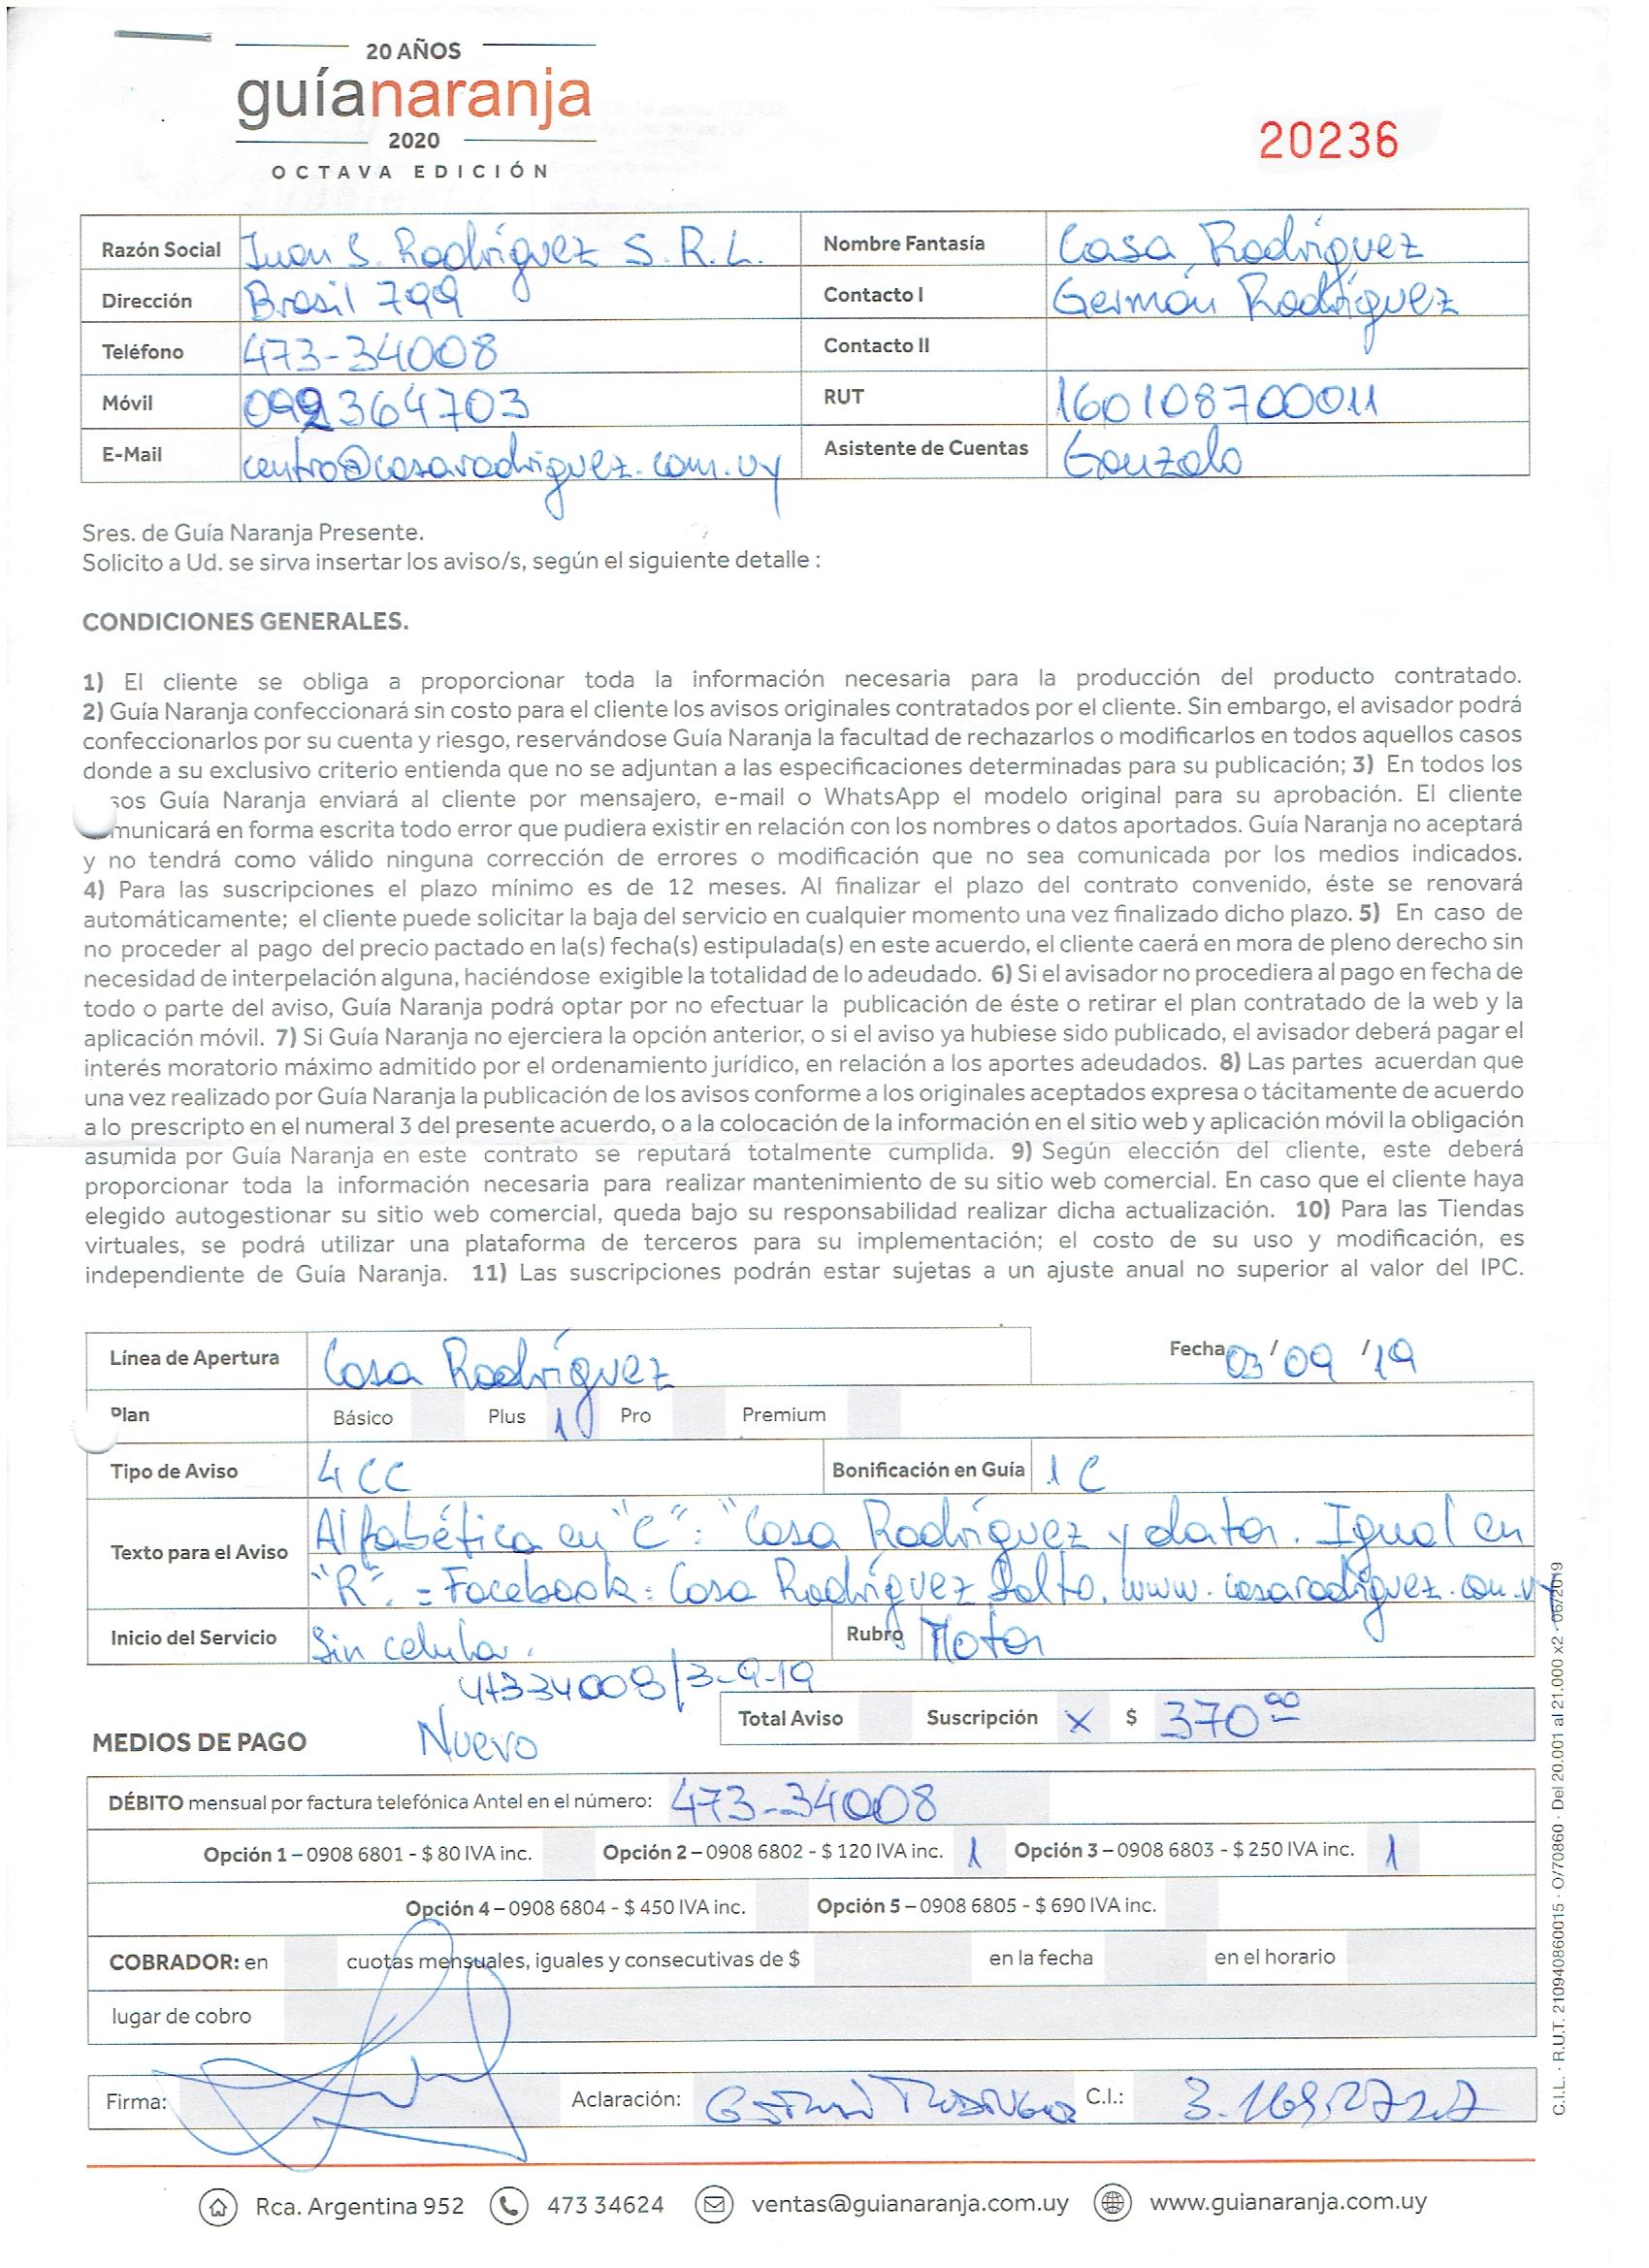 20 AÑOS
guíanaranja
2020
OCTAVA EDICIÓN
20236
Razón Social Juan S. Rodríguez S.R.L. Nombre Fantasía Casa Rodríguez
Dirección Brasil 799 Contacto I Germán Rodríguez
Teléfono 473-34008 Contacto II
Móvil 092364703 RUT 160108700011
E-Mail centro@casarodriguez.com.uy Asistente de Cuentas Gonzalo
Sres. de Guía Naranja Presente.
Solicito a Ud. se sirva insertar los aviso/s, según el siguiente detalle :
CONDICIONES GENERALES.
1) El cliente se obliga a proporcionar toda la información necesaria para la producción del producto contratado.
2) Guía Naranja confeccionará sin costo para el cliente los avisos originales contratados por el cliente. Sin embargo, el avisador podrá
confeccionarlos por su cuenta y riesgo, reservándose Guía Naranja la facultad de rechazarlos o modificarlos en todos aquellos casos
donde a su exclusivo criterio entienda que no se adjuntan a las especificaciones determinadas para su publicación; 3) En todos los
sos Guía Naranja enviará al cliente por mensajero, e-mail o WhatsApp el modelo original para su aprobación. El cliente
municará en forma escrita todo error que pudiera existir en relación con los nombres o datos aportados. Guía Naranja no aceptará
y no tendrá como válido ninguna corrección de errores o modificación que no sea comunicada por los medios indicados.
4) Para las suscripciones el plazo mínimo es de 12 meses. Al finalizar el plazo del contrato convenido, éste se renovará
automáticamente; el cliente puede solicitar la baja del servicio en cualquier momento una vez finalizado dicho plazo. 5) En caso de
no proceder al pago del precio pactado en la(s) fecha(s) estipulada(s) en este acuerdo, el cliente caerá en mora de pleno derecho sin
necesidad de interpelación alguna, haciéndose exigible la totalidad de lo adeudado. 6) Si el avisador no procediera al pago en fecha de
todo o parte del aviso, Guía Naranja podrá optar por no efectuar la publicación de éste o retirar el plan contratado de la web y la
aplicación móvil. 7) Si Guía Naranja no ejerciera la opción anterior, o si el aviso ya hubiese sido publicado, el avisador deberá pagar el
interés moratorio máximo admitido por el ordenamiento jurídico, en relación a los aportes adeudados. 8) Las partes acuerdan que
una vez realizado por Guía Naranja la publicación de los avisos conforme a los originales aceptados expresa o tácitamente de acuerdo
a lo prescripto en el numeral 3 del presente acuerdo, o a la colocación de la información en el sitio web y aplicación móvil la obligación
asumida por Guía Naranja en este contrato se reputará totalmente cumplida. 9) Según elección del cliente, este deberá
proporcionar toda la información necesaria para realizar mantenimiento de su sitio web comercial. En caso que el cliente haya
elegido autogestionar su sitio web comercial, queda bajo su responsabilidad realizar dicha actualización. 10) Para las Tiendas
virtuales, se podrá utilizar una plataforma de terceros para su implementación; el costo de su uso y modificación, es
independiente de Guía Naranja. 11) Las suscripciones podrán estar sujetas a un ajuste anual no superior al valor del IPC.
Línea de Apertura Casa Rodríguez Fecha 03 / 09 / 19
Plan Básico Plus 1 Pro Premium
Tipo de Aviso 4 CC Bonificación en Guía 1 C
Texto para el Aviso Alfabética en "C": "Casa Rodríguez y datos. Igual en
"R". = Facebook: Casa Rodríguez Salto. www.casarodriguez.com.uy
Inicio del Servicio Sin celular. Rubro Motos
47334008/3-9-19
Total Aviso Suscripción X $ 370 00
MEDIOS DE PAGO Nuevo
DÉBITO mensual por factura telefónica Antel en el número: 473-34008
Opción 1 – 0908 6801 - $ 80 IVA inc. Opción 2 – 0908 6802 - $ 120 IVA inc. 1 Opción 3 – 0908 6803 - $ 250 IVA inc. 1
Opción 4 – 0908 6804 - $ 450 IVA inc. Opción 5 – 0908 6805 - $ 690 IVA inc.
COBRADOR: en cuotas mensuales, iguales y consecutivas de $ en la fecha en el horario
lugar de cobro
Firma: Aclaración: C.I.:
Rca. Argentina 952 473 34624 ventas@guianaranja.com.uy www.guianaranja.com.uy
C.I.L. · R.U.T. 210940860015 · O/70860 · Del 20.001 al 21.000 x2 - 06/2019